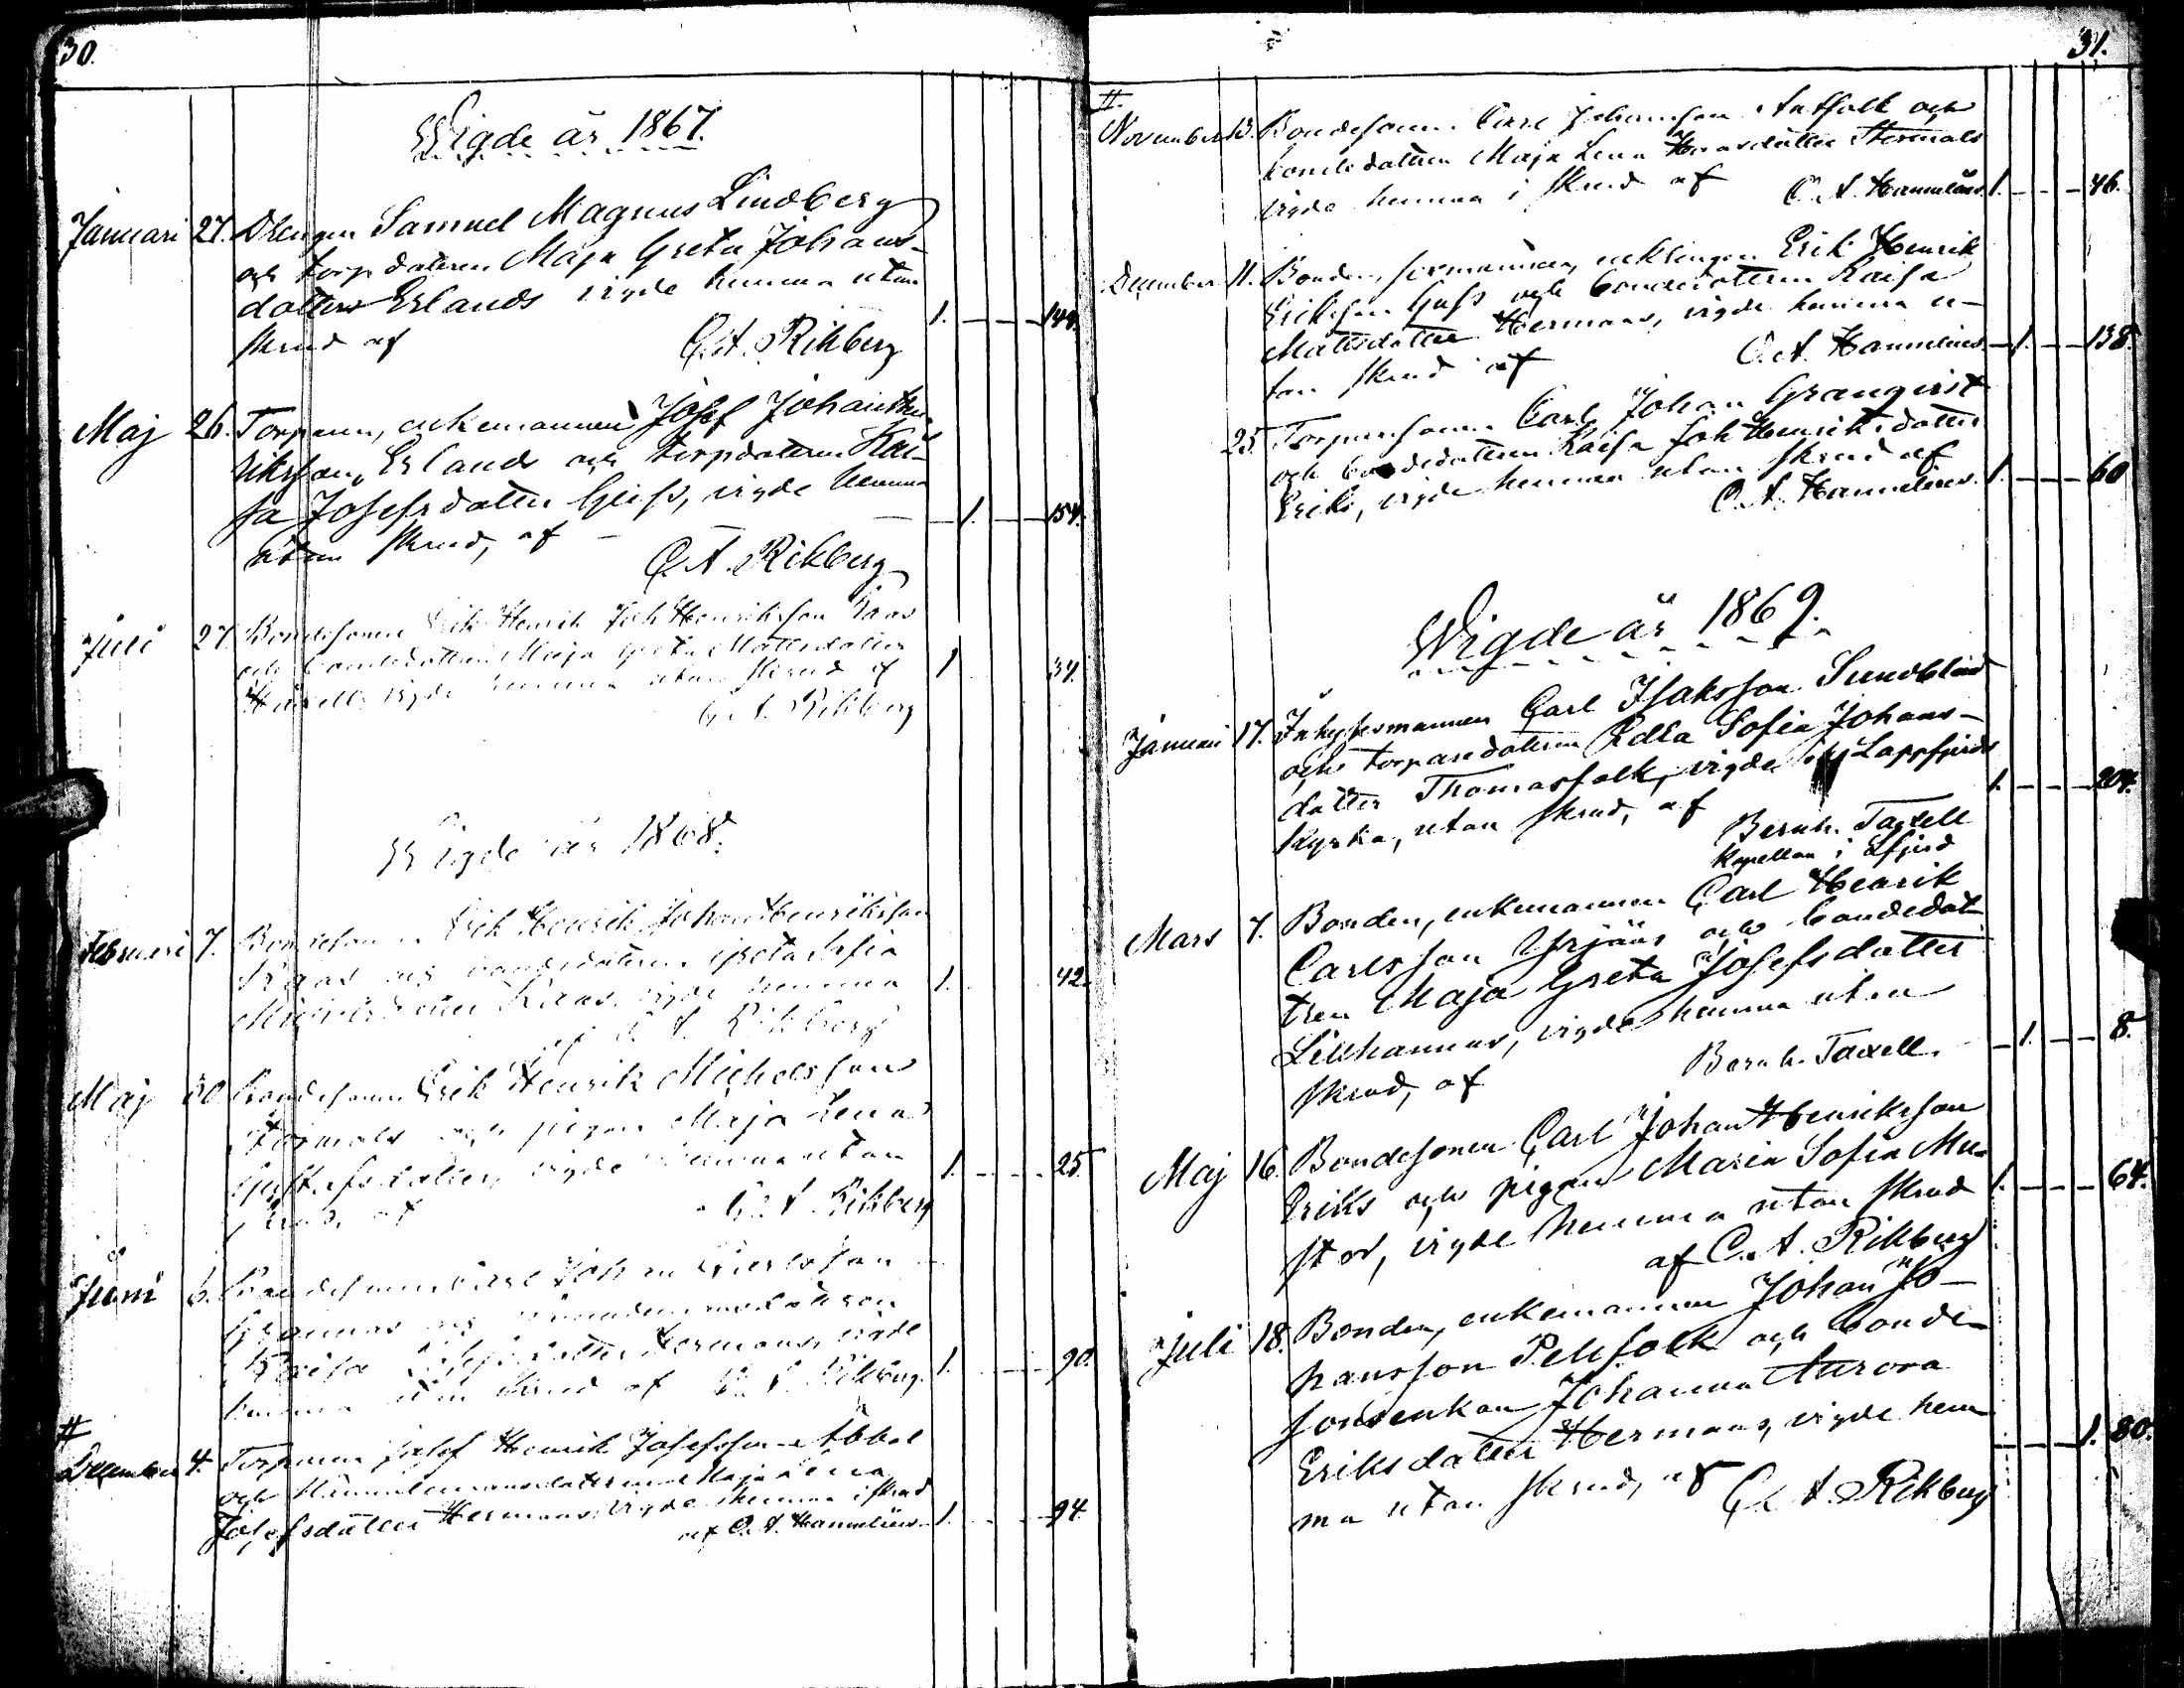 30.
Wigde år 1867.
Januari 27. Drengen Samuel Magnus Lindberg
och torpdottren Maja Greta Johans-
dotter Erlands vigde hemma utan
skrud af 1. 144.
C. A. Rikberg
Maj 26. Torparen, enkemannen Josef Johan
Eriksson Erlands och torpdottren Kai-
sa Josefsdotter Geiss, vigde hemma
utan skrud, af 1. 154.
C. A. Rikberg
Juli 27. Bondesonen Erik Henrik Joh Henriksson Kaas
och bondedottren Maja Greta Mattsdotter
vigde hemma utan skrud af 1 34.
C. A. Rikberg
Wigde år 1868.
Februari 7. Bondesonen Erik Henrik Johan Henriksson
Kaas och bondedottren Greta Sofia
Kaas, vigde hemma 1. 42.
af C. A. Rikberg
Maj 30 Bondesonen Erik Henrik Michelsson
och pigan Maja Lena
Gustafsdotter, vigde hemma utan 1. 25
skrud, af C. A. Rikberg
Juni 6. Bondesonen Carl Johan
Grannas och
Kaisa Josefsdotter Hermans, vigde
hemma utan skrud af C. A. Rikberg. 1. 90.
#
December 4. Torparen Josef Henrik Josefsson Abbal
och Maja Lena
Josefsdotter Hermans, vigde hemma i skrud
af C. A. Hannelius. 1. 94.
31.
#
November 13. Bondesonen Carl Johansson Antfolk och
bondedottren Maja Lena Hansdotter
vigde hemma i skrud af C. A. Hannelius. 1. 46.
December 11. Bonden, sexmannen, enklingen Erik Henrik
Eriksson Guss och bondedottren Kaisa
Mattsdotter Hermans, vigde hemma u-
tan skrud af C. A. Hannelius. 1. 138.
25. Torparesonen Carl Johan Granqvist
och bondedottren Kaisa Joh Henriksdotter
Eriks, vigde hemma utan skrud af
C. A. Hannelius. 1. 60
Wigde år 1869.
Januari 17. Inhysesmannen Carl Isaksson Sundblad
och torparedottren Edla Sofia Johans-
dotter Thomasfolk, vigde i Lappfjerds
kyrka, utan skrud, af 1. 204.
Bernh. Taxell
Kapellan i Lfjerd
Mars 7. Bonden, enkemannen Carl Henrik
Carlsson Yrjans och bondedot-
tren Maja Greta Josefsdotter
Lillhannus, vigde hemma utan
skrud, af Bernh. Taxell. 1. 8.
Maj 16. Bondesonen Carl Johan Henriksson
Eriks och pigan Maria Sofia Mu-
stor, vigde hemma utan skrud 1. 64.
af C. A. Rikberg
Juli 18. Bonden, enkemannen Johan Jo-
hansson Pellfolk och bonde-
sonsenkan Johanna Aurora
Eriksdotter Hermans, vigde hem-
ma utan skrud, af 1. 80.
C. A. Rikberg